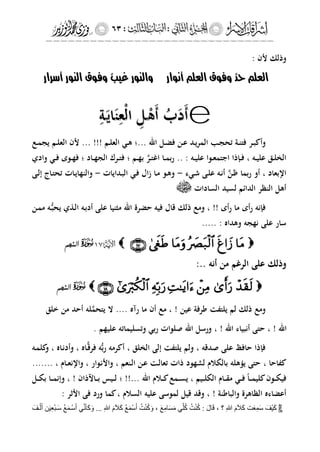 إشراقات الإسراء الجزء الثاني : الباب الثالث : ٦٣ نوري محمد نور
وذلك لأن :
العلم حدّ وفوق العلم أنوار والنور غيب وفوق النور أسرار
أَدَبُ أَهْلِ الْعِنَايَةِ
وأكبر فتنة تحجب المريد عن فضل الله ...؛ هي العلم !!! ... لأن العلم يجمع
الخلق عليه ، فإذا اجتمعوا عليه : .. ربما اغترّ بهم ؛ فترك الجهاد ؛ فهوى في وادي
الإبعاد ، أو ربما ظنّ أنه على شيء – وهو ما زال في البدايات – والنهايات تحتاج إلى
أهل النظر الدائم لسيد السادات ﷺ
فإنه رأى ما رأى !! ، ومع ذلك قال فيه حضرة الله مثنيا على أدبه الذي يحبّه ممن
سار على نهجه وهداه : .....
﴿ مَا زَاغَ ٱلْبَصَرُ وَمَا طَغَىٰ ﴾ ١٧ النجم
وذلك على الرغم من أنه ..:
﴿ لَقَدْ رَأَىٰ مِنْ ءَايَـٰتِ رَبِّهِ ٱلْكُبْرَىٰٓ ﴾ ١٨ النجم
ومع ذلك لم يلتفت طرفة عين ! ، مع أن ما رآه .... لا يتحمّله أحد من خلق
الله ! ، حتى أنبياء الله ! ، ورسل الله صلوات ربي وتسليماته عليهم .
فإذا حافظ على صدقه ، ولم يلتفت إلى الخلق ، أكرمه ربّه فرقّاه ، وأدناه ، وكلمه
كفاحا ، حتى يؤهله بالكلام لشهود ذات تعالت عن النعم ، والأنوار ، والإنعام ، .......
فيكون كليماً في مقام الكليم ، يسمع كلام الله ...!! ؛ ليس بالآذان ! ، وإنما بكل
أعضاءه الظاهرة والباطنة ! ، وقد قيل لموسى عليه السلام ، كما ورد في الأثر :
كَيْفَ سَمِعْتَ كَلَامَ اللهِ ؟ ، قَالَ : كُنْتُ كُلِّي مَسَامِعَ ، وَكُنْتُ أَسْمَعُ كَلَامَ اللهِ ... وَكَأَنِّي أَسْمَعُ سَبْعِينَ أَلْفَ